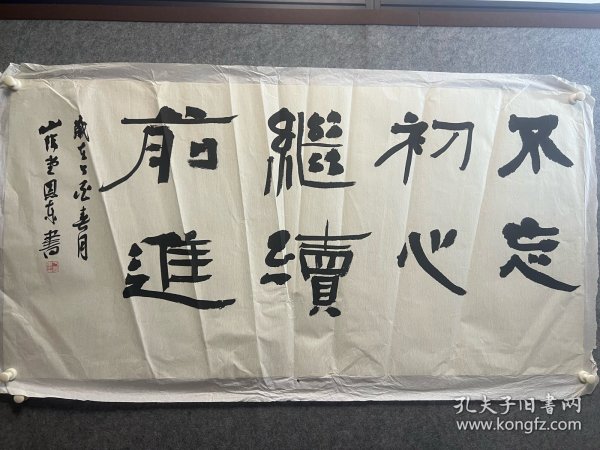 不忘
初心
繼續
前進
歲在丁酉春月
山陰堂國東書
孔夫子旧書网
www.kongfz.com